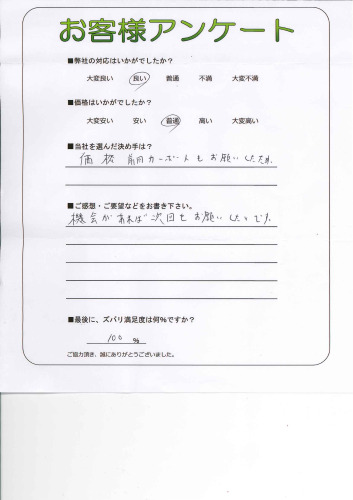 お客様アンケート
■弊社の対応はいかがでしたか？
大変良い 良い 普通 不満 大変不満
■価格はいかがでしたか？
大変安い 安い 普通 高い 大変高い
■当社を選んだ決め手は？
価格 前回カーポートもお願いしたため
■ご感想・ご要望などをお書き下さい。
機会があれば次回もお願いしたいです。
■最後に、ズバリ満足度は何％ですか？
100 %
ご協力頂き、誠にありがとうございました。